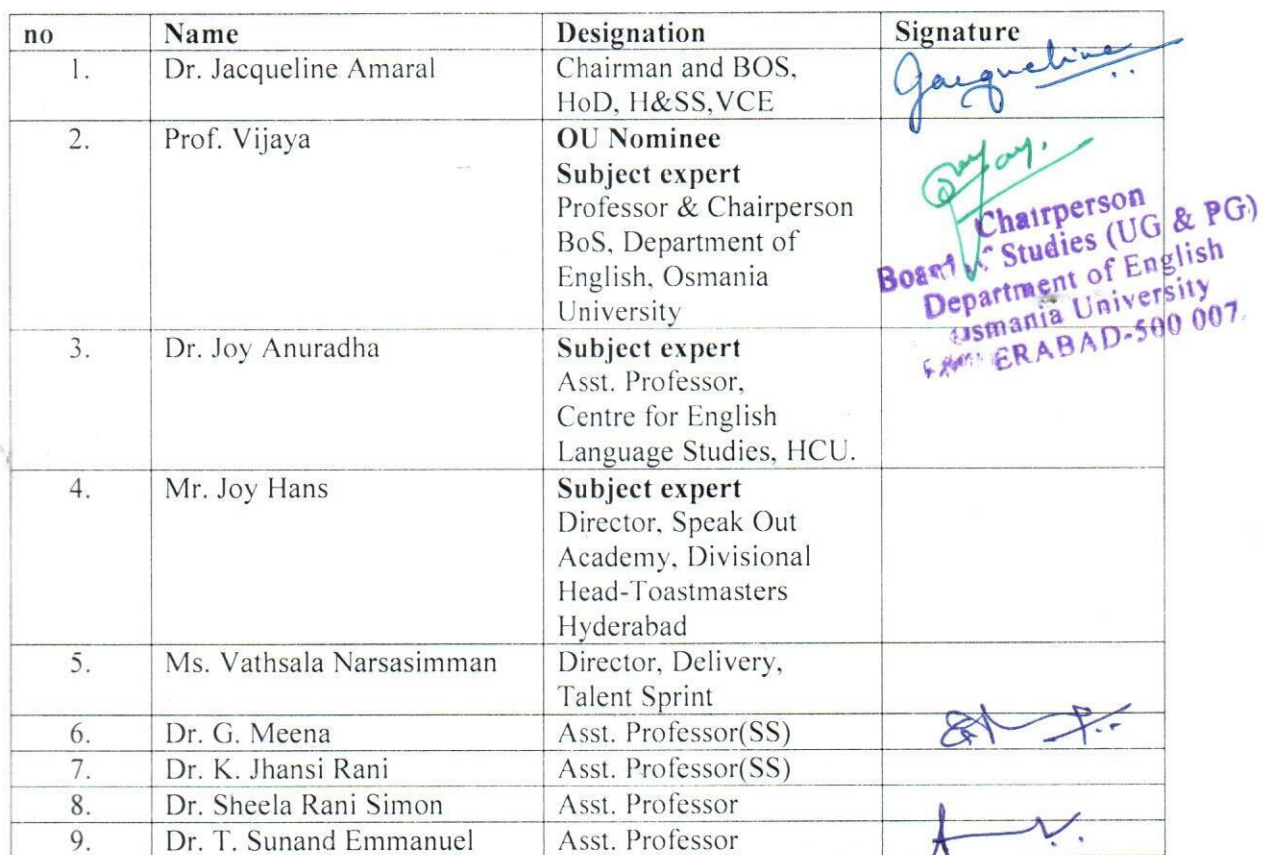 no Name Designation Signature
1. Dr. Jacqueline Amaral Chairman and BOS,
HoD, H&SS,VCE
Jacqueline
2. Prof. Vijaya OU Nominee
Subject expert
Professor & Chairperson
BoS, Department of
English, Osmania
University
Chairperson
Studies (UG & PG)
Department of English
Osmania University
ERABAD-500 007.
3. Dr. Joy Anuradha Subject expert
Asst. Professor,
Centre for English
Language Studies, HCU.
4. Mr. Joy Hans Subject expert
Director, Speak Out
Academy, Divisional
Head-Toastmasters
Hyderabad
5. Ms. Vathsala Narsasimman Director, Delivery,
Talent Sprint
6. Dr. G. Meena Asst. Professor(SS)
7. Dr. K. Jhansi Rani Asst. Professor(SS)
8. Dr. Sheela Rani Simon Asst. Professor
9. Dr. T. Sunand Emmanuel Asst. Professor